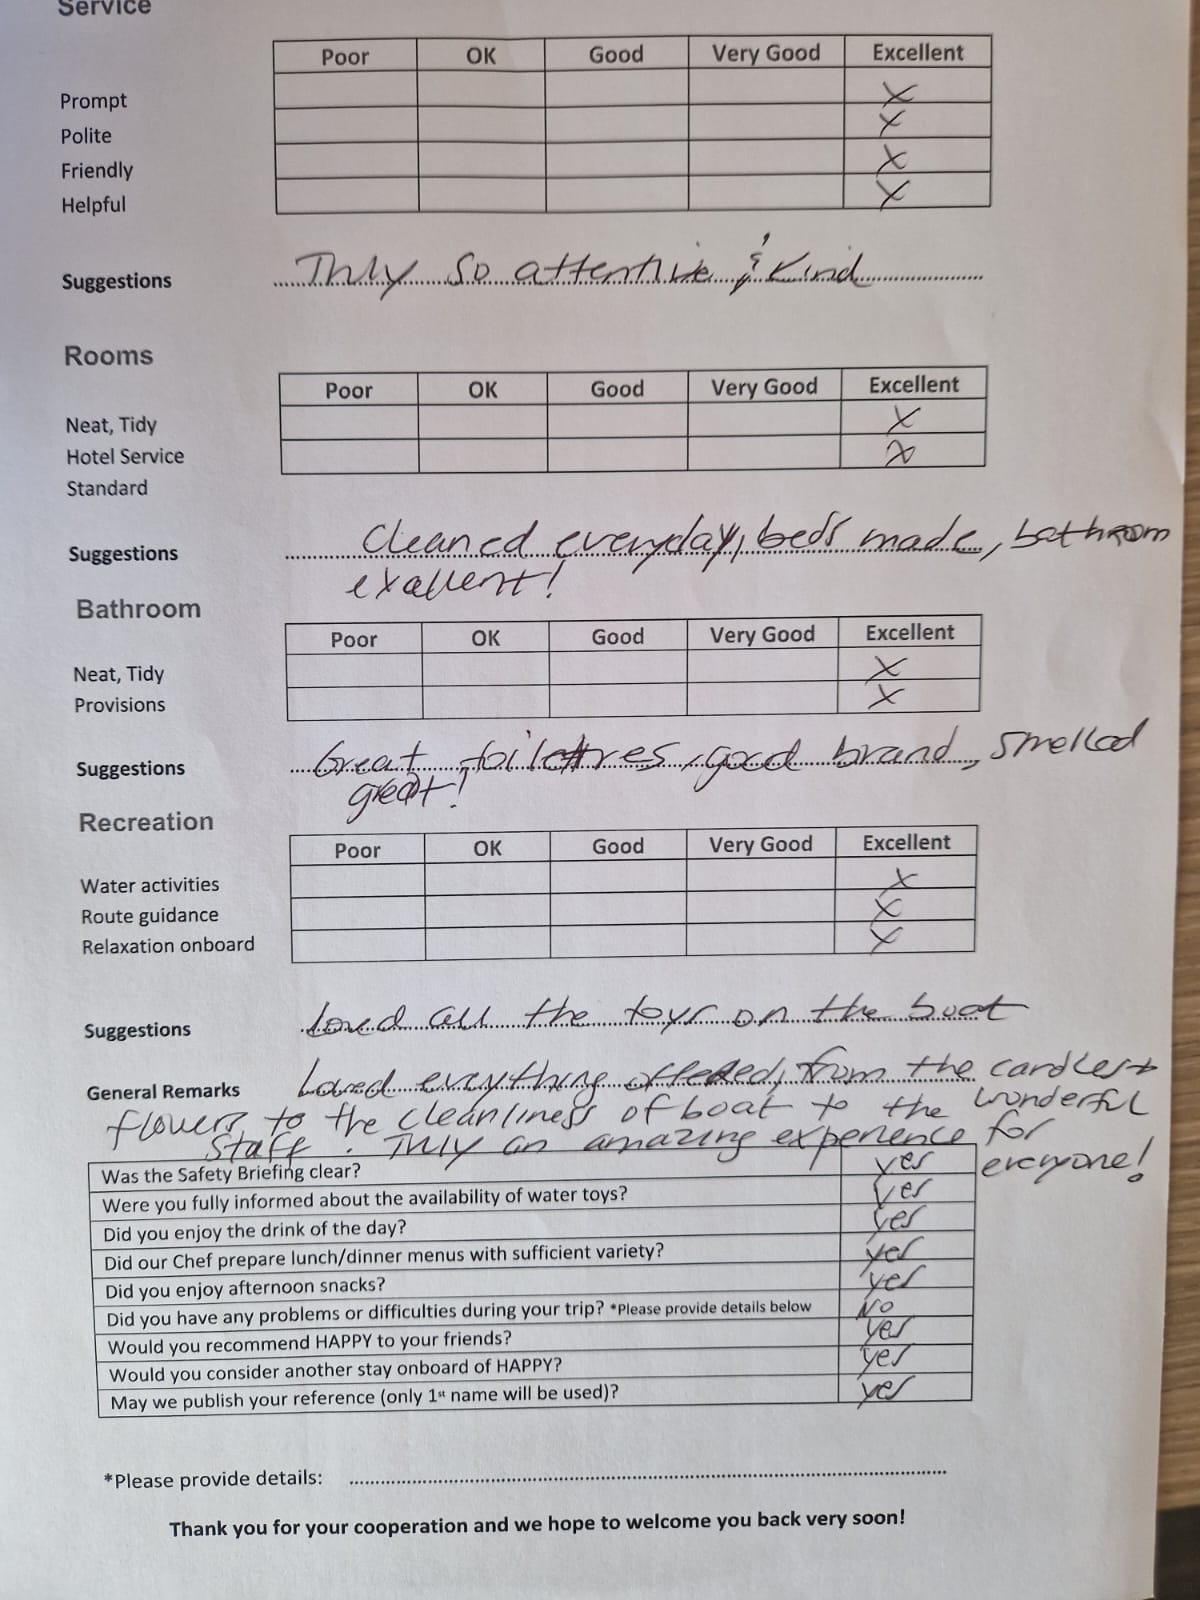 Service
Poor OK Good Very Good Excellent
Prompt X
Polite X
Friendly X
Helpful X
Suggestions Truly so attentive & kind
Rooms
Poor OK Good Very Good Excellent
Neat, Tidy X
Hotel Service X
Standard
Suggestions Cleaned everyday, beds made, bathroom
exallent!
Bathroom
Poor OK Good Very Good Excellent
Neat, Tidy X
Provisions X
Suggestions Great , good brand, smelled
great!
Recreation
Poor OK Good Very Good Excellent
Water activities X
Route guidance X
Relaxation onboard X
Suggestions Loved all the toys on the boat
General Remarks Loved everything offered, from the candles +
flowers to the cleanliness of boat to the wonderful
staff. Truly an amazing experience for
everyone!
Was the Safety Briefing clear? yes
Were you fully informed about the availability of water toys? yes
Did you enjoy the drink of the day? yes
Did our Chef prepare lunch/dinner menus with sufficient variety? yes
Did you enjoy afternoon snacks? yes
Did you have any problems or difficulties during your trip? *Please provide details below NO
Would you recommend HAPPY to your friends? yes
Would you consider another stay onboard of HAPPY? yes
May we publish your reference (only 1st name will be used)? yes
*Please provide details:
Thank you for your cooperation and we hope to welcome you back very soon!